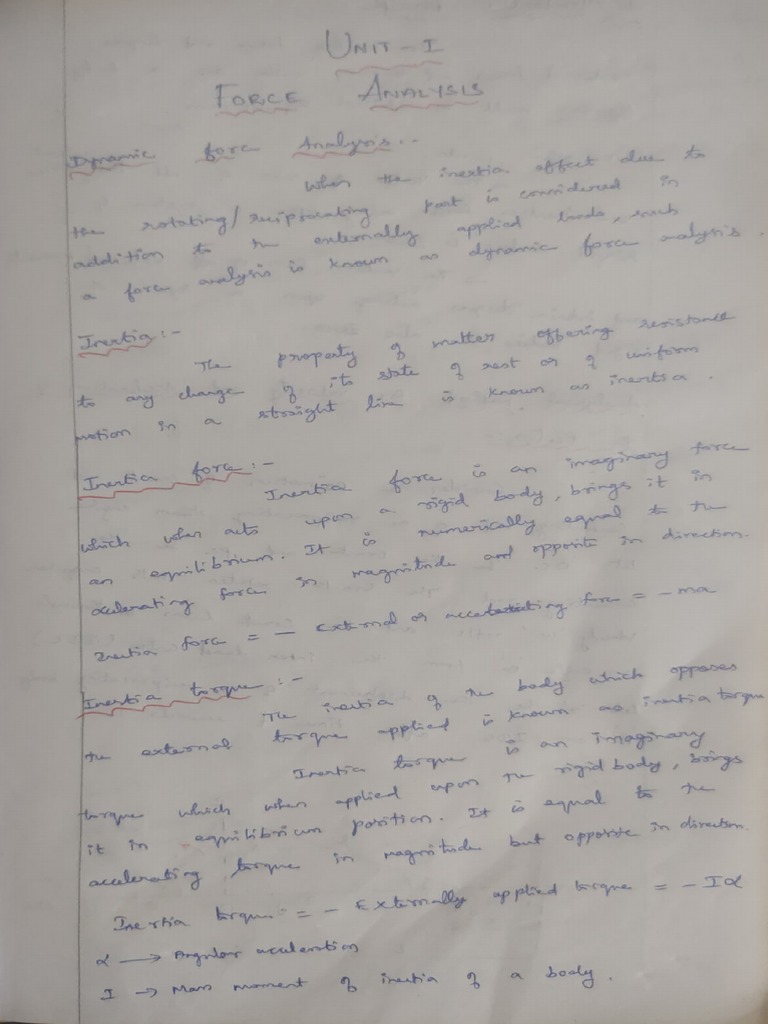 UNIT - I
FORCE ANALYSIS
Dynamic force Analysis:-
When the inertia effect due to
the rotating/reciprocating part is considered in
addition to the externally applied loads, such
a force analysis is known as dynamic force analysis.
Inertia :-
The property of matter offering resistance
to any change of its state of rest or of uniform
motion in a straight line is known as inertia.
Inertia force :-
Inertia force is an imaginary force
which when acts upon a rigid body, brings it in
an equilibrium. It is numerically equal to the
acelerating force in magnitude and opposite in direction.
Inertia force = - External or accelerating force = - ma
Inertia torque :-
The inertia of the body which opposes
the external torque applied is known as inertia torque
Inertia torque is an imaginary
torque which when applied upon the rigid body, brings
it in equilibrium position. It is equal to the
accelerating torque in magnitude but opposite in direction.
Inertia torque = - Externally applied torque = - Iα
α → Angular aceleration
I → Mass moment of inertia of a body.